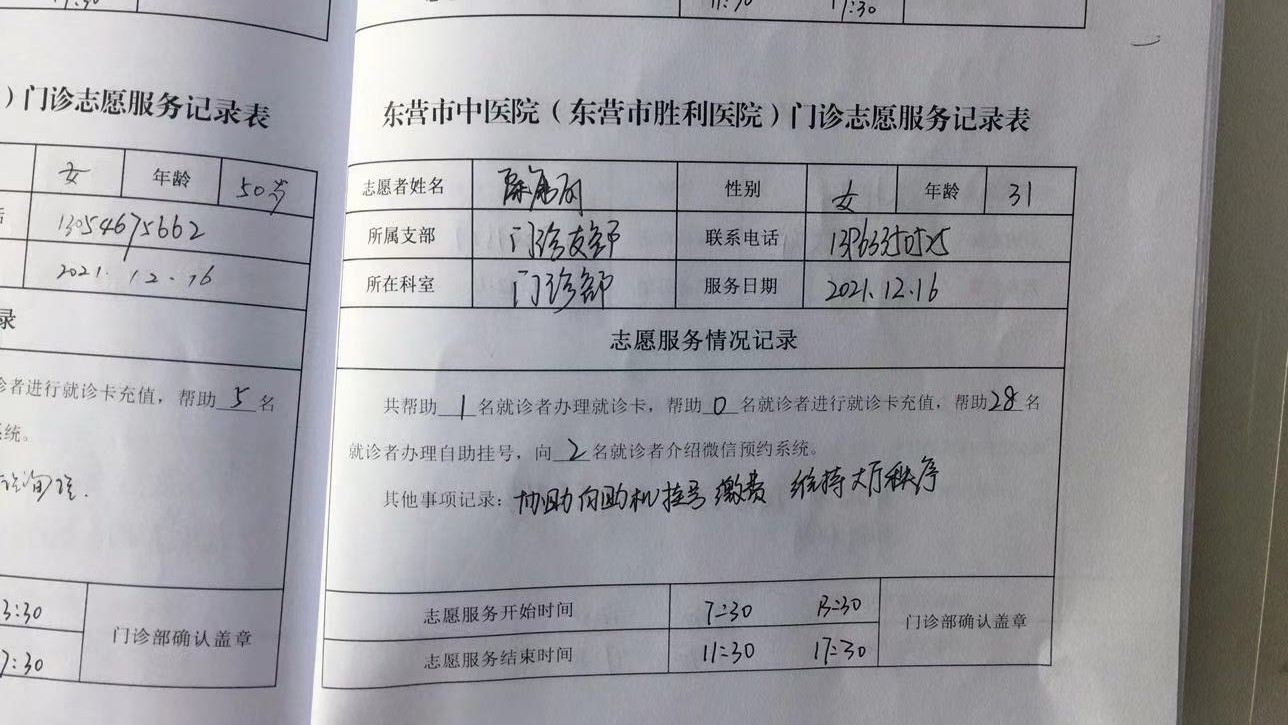 17:30
11:30 17:30
）门诊志愿服务记录表
女 年龄 50岁
13054675662
2021.12.16
录
诊者进行就诊卡充值，帮助 5 名
系统。
3:30
门诊部确认盖章
7:30
东营市中医院（东营市胜利医院）门诊志愿服务记录表
志愿者姓名 性别 女 年龄 31
所属支部 门诊支部 联系电话
所在科室 门诊部 服务日期 2021.12.16
志愿服务情况记录
共帮助 1 名就诊者办理就诊卡，帮助 0 名就诊者进行就诊卡充值，帮助 28 名
就诊者办理自助挂号，向 2 名就诊者介绍微信预约系统。
其他事项记录：协助自助机挂号缴费 维持大厅秩序
志愿服务开始时间 7:30 13:30
门诊部确认盖章
志愿服务结束时间 11:30 17:30